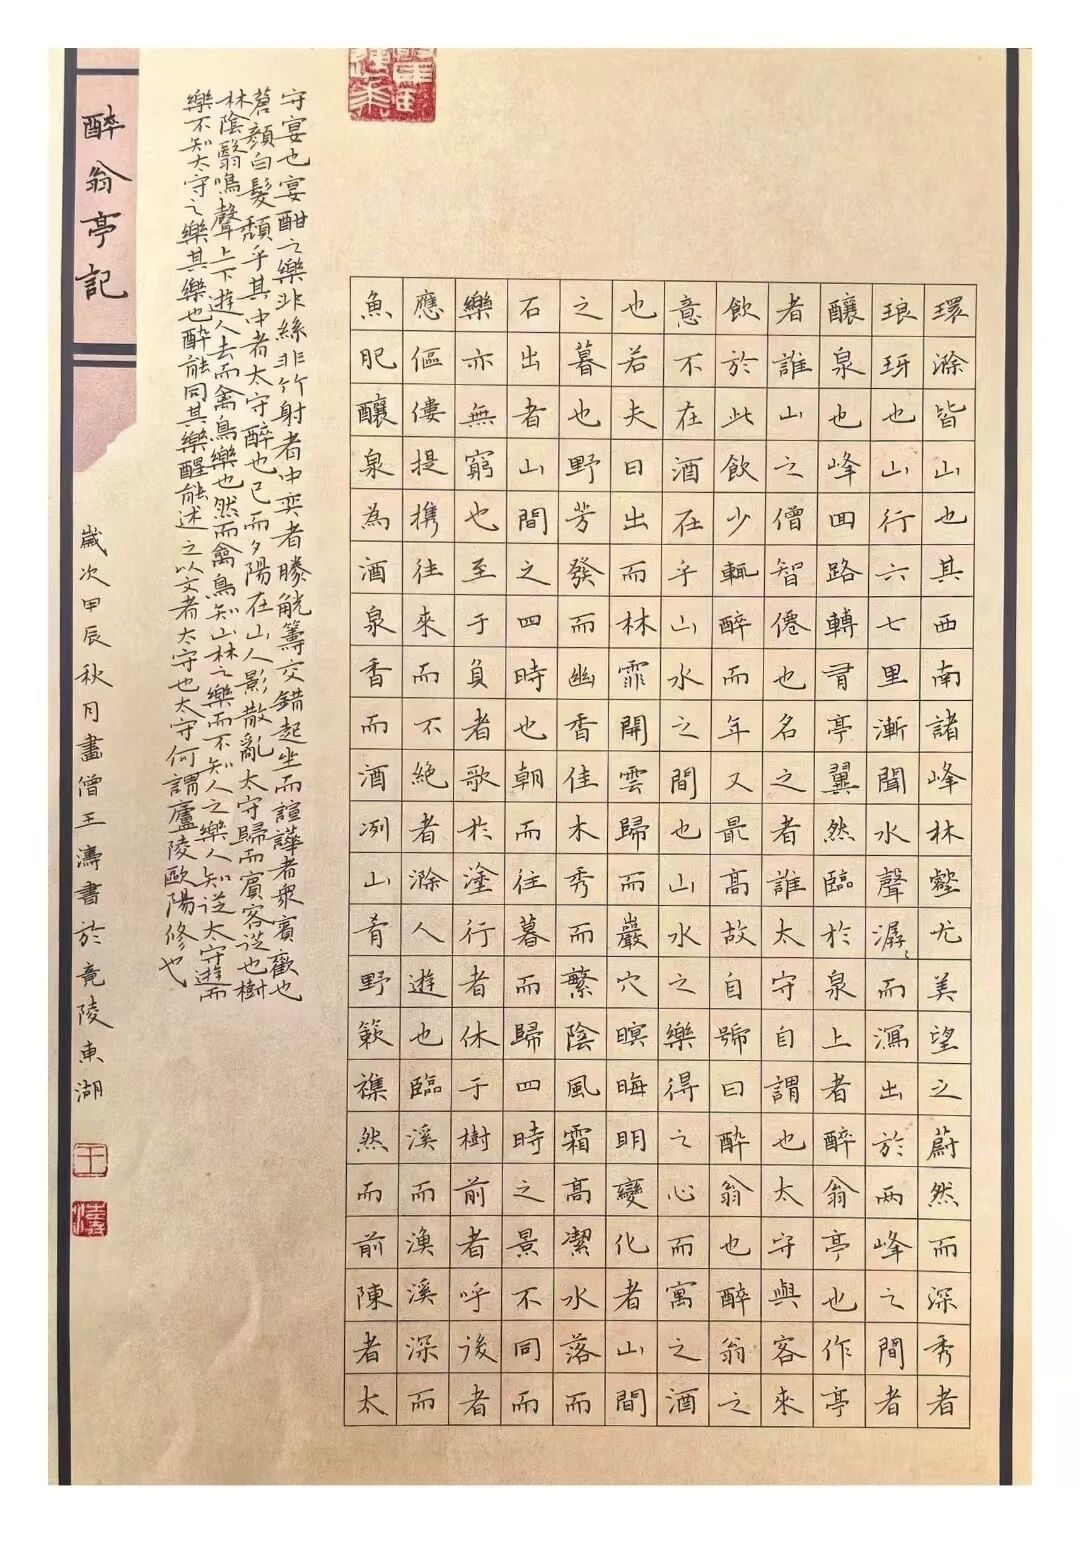 環滁皆山也其西南諸峰林壑尤美望之蔚然而深秀者
琅玡也山行六七里漸聞水聲潺〻而瀉出於兩峰之間者
釀泉也峰回路轉有亭翼然臨於泉上者醉翁亭也作亭
者誰山之僧智僊也名之者誰太守自謂也太守與客來
飲於此飲少輒醉而年又最高故自號曰醉翁也醉翁之
意不在酒在乎山水之間也山水之樂得之心而寓之酒
也若夫日出而林霏開雲歸而巖穴暝晦明變化者山間
之暮也野芳發而幽香佳木秀而繁陰風霜高潔水落而
石出者山間之四時也朝而往暮而歸四時之景不同而
樂亦無窮也至于負者歌於塗行者休于樹前者呼後者
應傴僂提攜往來而不絕者滁人遊也臨溪而漁溪深而
魚肥釀泉為酒泉香而酒冽山肴野簌襍然而前陳者太
守宴也宴酣之樂非絲非竹射者中奕者勝觥籌交錯起坐而諠譁者眾賓歡也
蒼顏白髮頹乎其中者太守醉也已而夕陽在山人影散亂太守歸而賓客從也樹
林陰翳鳴聲上下遊人去而禽鳥樂也然而禽鳥知山林之樂而不知人之樂人知從太守遊而
樂不知太守之樂其樂也醉能同其樂醒能述之以文者太守也太守何謂廬陵歐陽修也
醉翁亭記
歲次甲辰秋月畫僧王濤書於竟陵東湖
王
濤